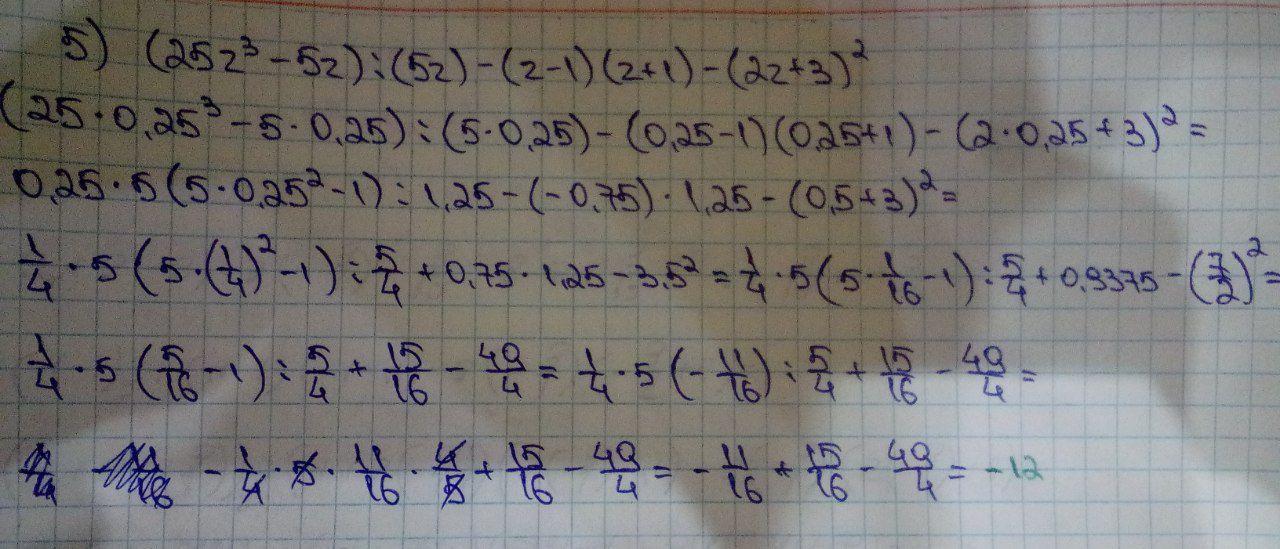 5) (25z³ - 5z) : (5z) - (z-1)(z+1) - (2z+3)²
(25·0,25³ - 5·0,25) : (5·0,25) - (0,25-1)(0,25+1) - (2·0,25+3)² =
0,25·5(5·0,25² - 1) : 1,25 - (-0,75)·1,25 - (0,5+3)² =
1/4 · 5(5·(1/4)² - 1) : 5/4 + 0,75·1,25 - 3,5² = 1/4 · 5(5·1/16 - 1) : 5/4 + 0,9375 - (7/2)² =
1/4 · 5(5/16 - 1) : 5/4 + 15/16 - 49/4 = 1/4 · 5(-11/16) : 5/4 + 15/16 - 49/4 =
- 1/4 · 5 · 11/16 · 4/5 + 15/16 - 49/4 = - 11/16 + 15/16 - 49/4 = -12